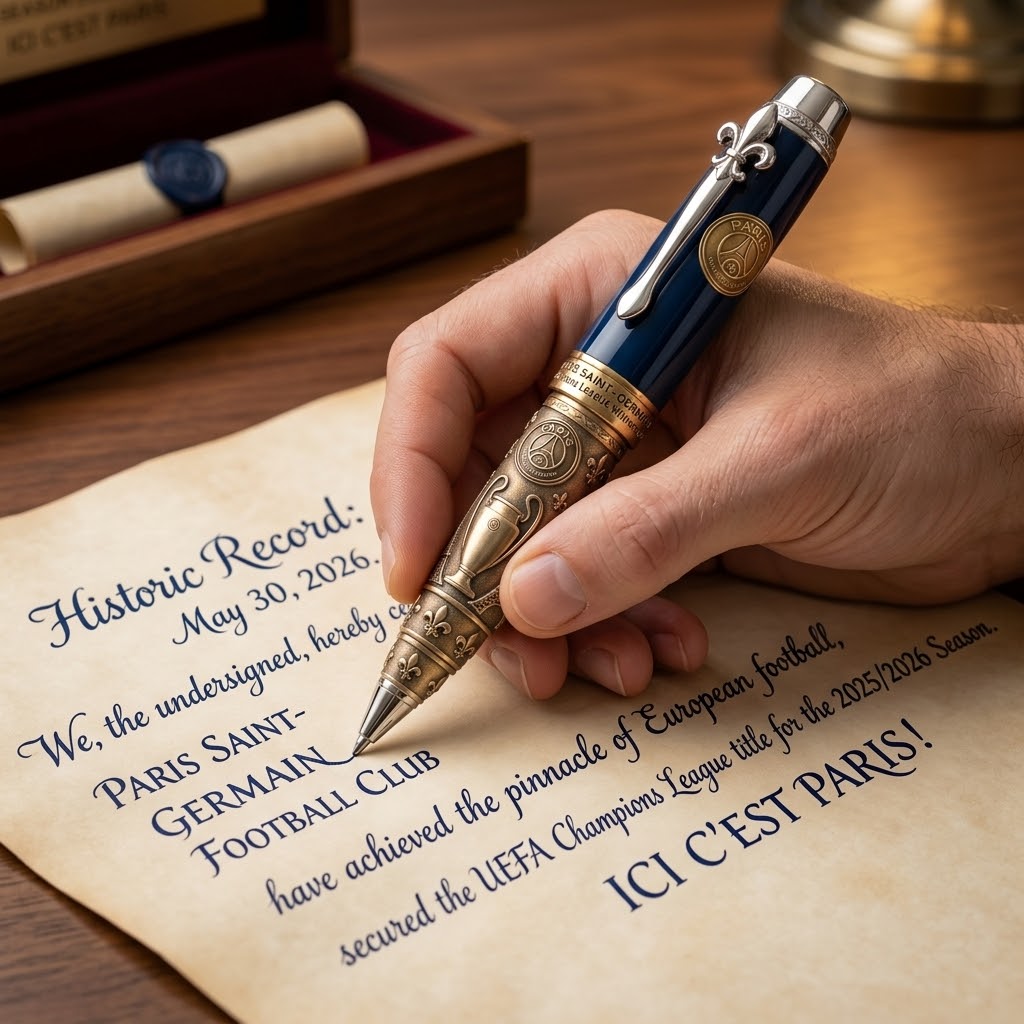 ICI C'EST PARIS
PARIS
SAINT-GERMAIN
League
PARIS
Historic Record:
May 30, 2026.
We, the undersigned, hereby
PARIS SAINT-
GERMAIN
FOOTBALL CLUB
have achieved the pinnacle of European football,
secured the UEFA Champions League title for the 2025/2026 Season.
ICI C'EST PARIS!